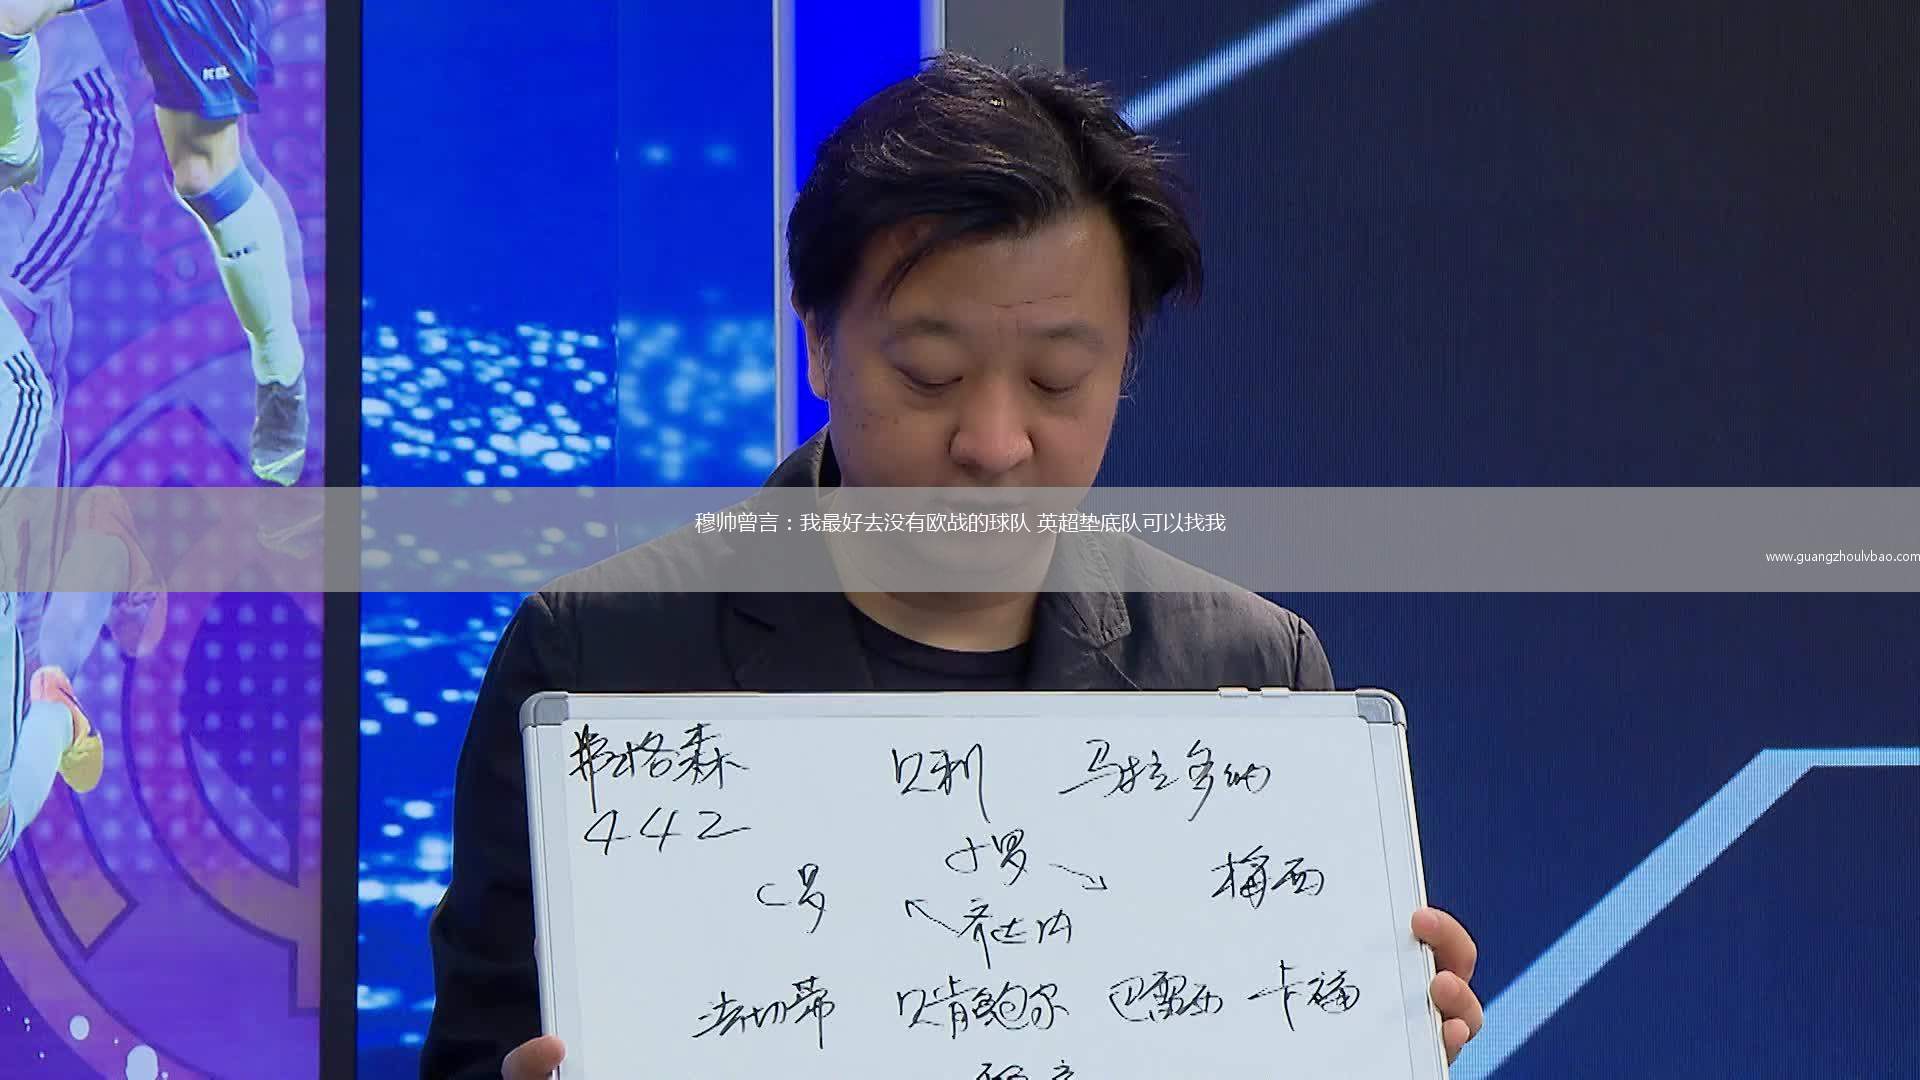 穆帅曾言：我最好去没有欧战的球队 英超垫底队可以找我
www.guangzhoulvbao.com
弗格森 贝利 马拉多纳
442
小罗
C罗 梅西
齐达内
法切蒂 贝肯鲍尔 巴雷西 卡福